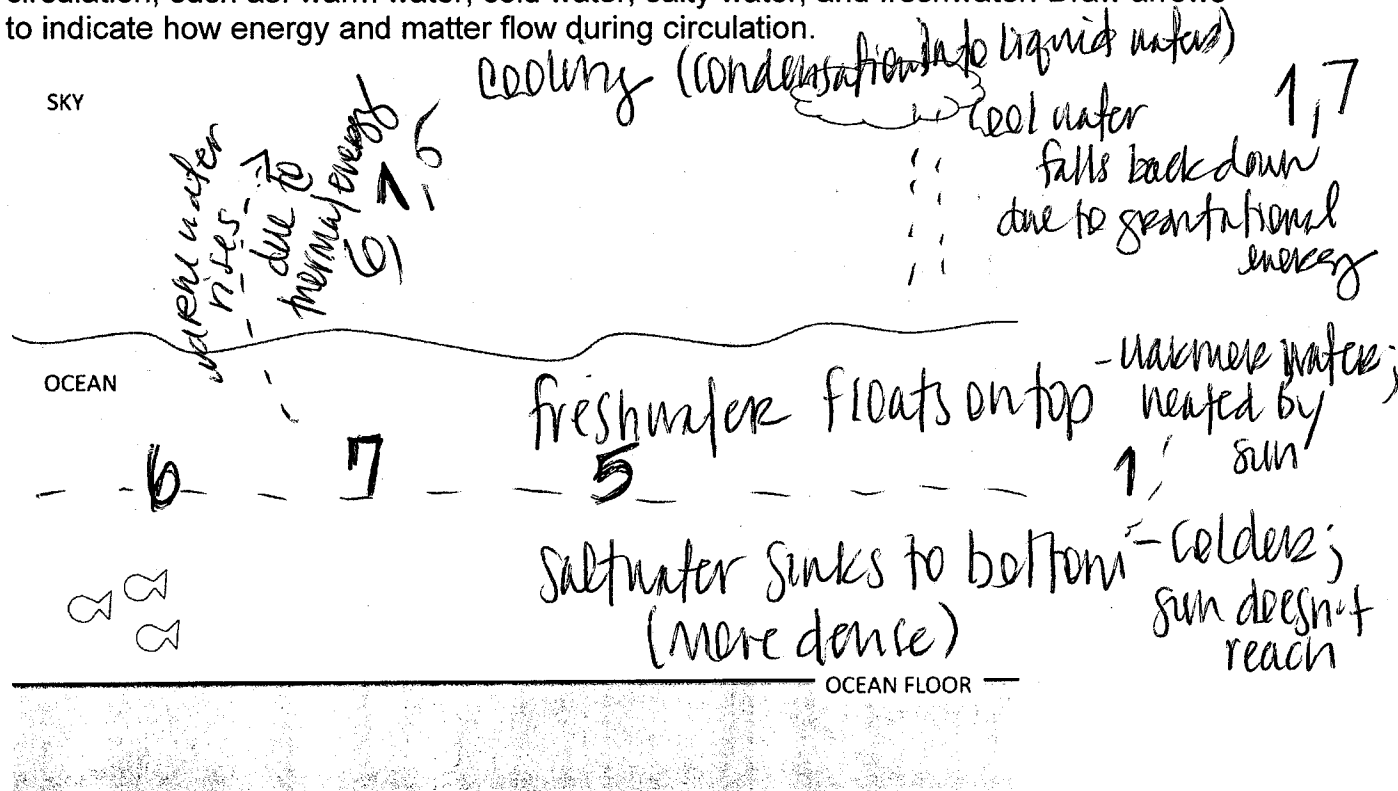 circulation, such as: warm water, cold water, salty water, and freshwater. Draw arrows
to indicate how energy and matter flow during circulation.
cooling (condensation into liquid water)
SKY
warm water
rises
due to
thermal energy
6, 7
1-6
cool water
falls back down
due to gravitational
energy
1, 7
OCEAN
freshwater floats on top
- warmer water;
heated by
sun
6 7 5 1
saltwater sinks to bottom
(more dense)
- colder;
sun doesn't
reach
OCEAN FLOOR